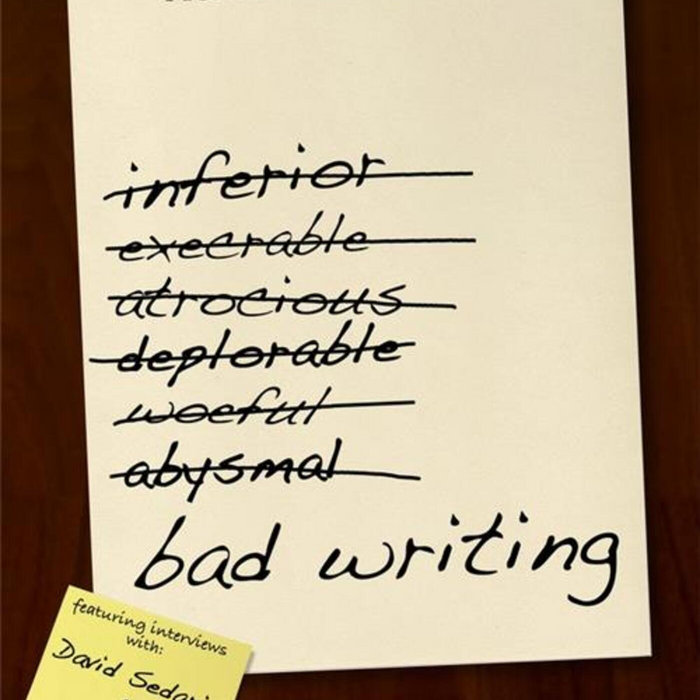 inferior
execrable
atrocious
deplorable
woeful
abysmal
bad writing
featuring interviews
with:
David